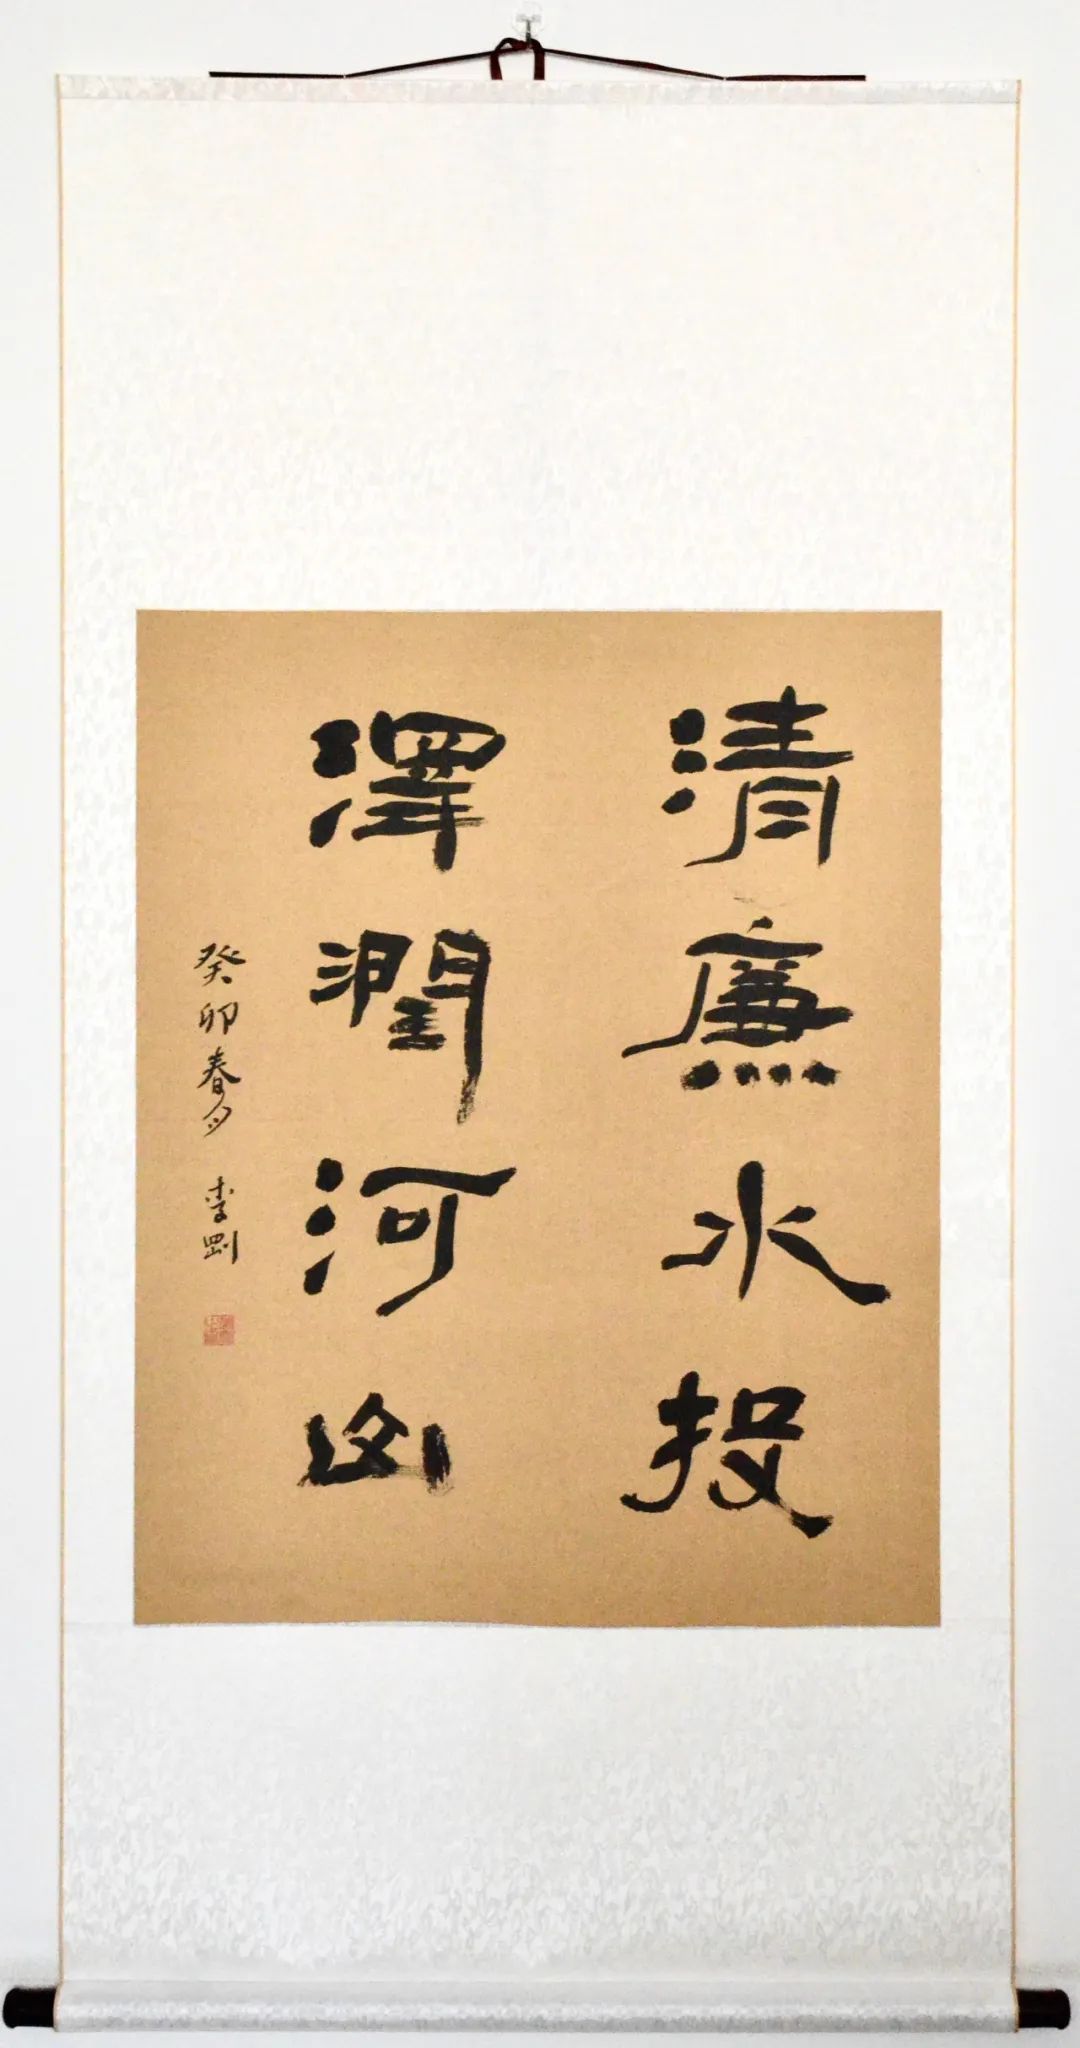 清廉水投
澤潤河山
癸卯春月 李剛